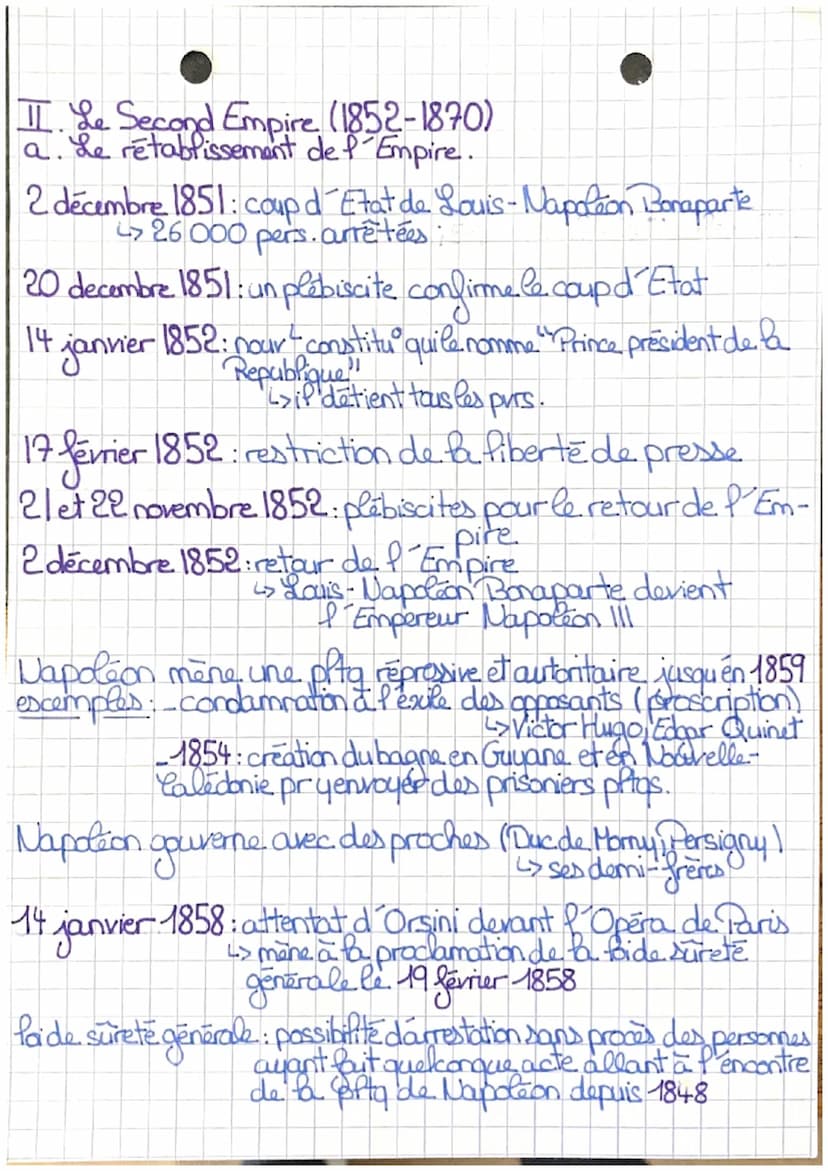 II. Le Second Empire (1852-1870)
a. Le rétablissement de l'Empire.
2 décembre 1851: coup d'Etat de Louis-Napoléon Bonaparte
↳ 26 000 pers. arrêtées.
20 decembre 1851: un plébiscite confirme le coup d'Etat
14 janvier 1852: nouvL constitu° qui le nomme "Prince président de la
Republique"
↳ il détient tous les pvrs.
17 février 1852: restriction de la liberté de presse
21 et 22 novembre 1852: plébiscites pour le retour de l'Em-
pire.
2 décembre 1852: retour de l'Empire
↳ Louis-Napoléon Bonaparte devient
l'Empereur Napoléon III
Napoléon mène une pltq répressive et autoritaire jusqu'en 1859
escemples: - condamnation à l'exile des opposants (proscription)
↳ Victor Hugo, Edgar Quinet
- 1854: création du bagne en Guyane et en Nouvelle-
Calédonie pr y envoyer des prisoniers pltqs.
Napoléon gouverne avec des proches (Duc de Morny, Persigny)
↳ ses demi-frères
14 janvier 1858: attentat d'Orsini devant l'Opéra de Paris
↳ mène à la proclamation de la loi de sûreté
générale le 19 février 1858
loi de sûreté générale: possibilité d'arrestation sans procès des personnes
ayant fait quelconque acte allant à l'encontre
de la pltq de Napoléon depuis 1848